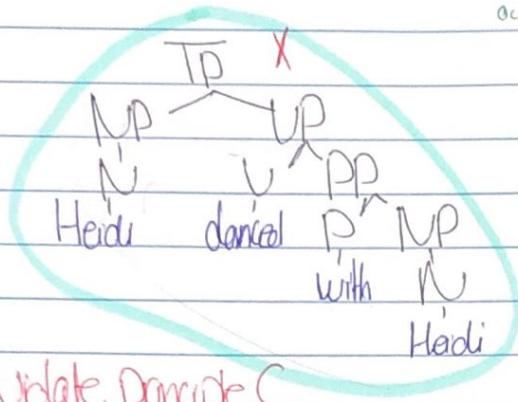 TP X
NP VP
N V PP
Heidi danced P NP
with N
Heidi
Violate Principle C